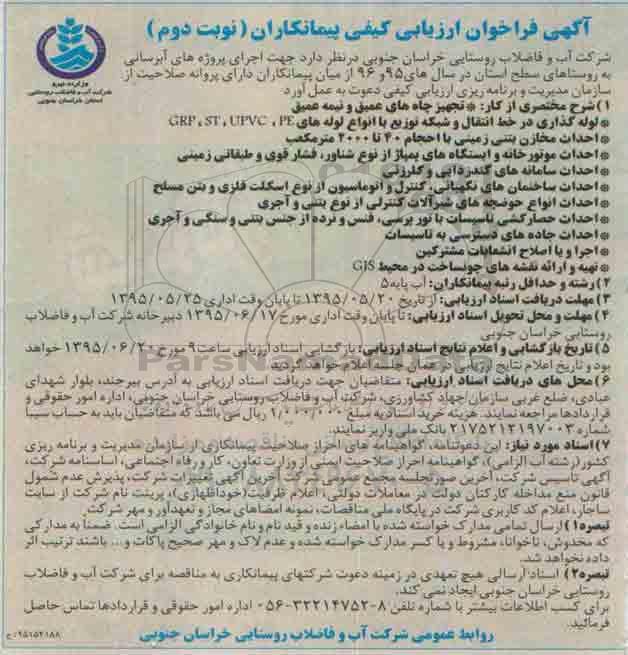 آگهی فراخوان ارزیابی کیفی پیمانکاران (نوبت دوم)
وزارت نیرو
شرکت آب و فاضلاب روستایی
استان خراسان جنوبی
شرکت آب و فاضلاب روستایی خراسان جنوبی درنظر دارد جهت اجرای پروژه های آبرسانی
به روستاهای سطح استان در سال های ۹۵ و ۹۶ از میان پیمانکاران دارای پروانه صلاحیت از
سازمان مدیریت و برنامه ریزی ارزیابی کیفی دعوت به عمل آورد
۱) شرح مختصری از کار: *تجهیز چاه های عمیق و نیمه عمیق
*لوله گذاری در خط انتقال و شبکه توزیع با انواع لوله های GRP ، ST ، UPVC ، PE
*احداث مخازن بتنی زمینی با احجام ۴۰ تا ۲۰۰۰ مترمکعب
*احداث موتورخانه و ایستگاه های پمپاژ از نوع شناور، فشار قوی و طبقاتی زمینی
*احداث سامانه های گندزدایی و کلرزنی
*احداث ساختمان های نگهبانی، کنترل و اتوماسیون از نوع اسکلت فلزی و بتن مسلح
*احداث انواع حوضچه های شیرآلات کنترلی از نوع بتنی و آجری
*احداث حصارکشی تاسیسات با تور پرسی، فنس و نرده از جنس بتنی و سنگی و آجری
*احداث جاده های دسترسی به تاسیسات
*اجرا و یا اصلاح انشعابات مشترکین
*تهیه و ارائه نقشه های چونساخت در محیط GIS
۲) رشته و حداقل رتبه پیمانکاران: آب پایه ۵
۳) مهلت دریافت اسناد ارزیابی: از تاریخ ۱۳۹۵/۰۵/۲۰ تا پایان وقت اداری ۱۳۹۵/۰۵/۲۵
۴) مهلت و محل تحویل اسناد ارزیابی: تا پایان وقت اداری مورخ ۱۳۹۵/۰۶/۱۷ دبیرخانه شرکت آب و فاضلاب
روستایی خراسان جنوبی
۵) تاریخ بازگشایی و اعلام نتایج اسناد ارزیابی: بازگشایی اسناد ارزیابی ساعت ۹ مورخ ۱۳۹۵/۰۶/۲۰ خواهد
بود و تاریخ اعلام نتایج ارزیابی در همان جلسه اعلام خواهد گردید
۶) محل های دریافت اسناد ارزیابی: متقاضیان جهت دریافت اسناد ارزیابی به آدرس بیرجند، بلوار شهدای
عبادی، ضلع غربی سازمان جهاد کشاورزی، شرکت آب و فاضلاب روستایی خراسان جنوبی، اداره امور حقوقی و
قراردادها مراجعه نمایند. هزینه خرید اسناد به مبلغ ۱/۰۰۰/۰۰۰ ریال می باشد که متقاضیان باید به حساب سیبا
شماره ۲۱۷۵۲۱۲۱۹۷۰۰۳ بانک ملی واریز نمایند.
۷) اسناد مورد نیاز: این دعوتنامه، گواهینامه های احراز صلاحیت پیمانکاری از سازمان مدیریت و برنامه ریزی
کشور (رشته آب الزامی)، گواهینامه احراز صلاحیت ایمنی از وزارت تعاون، کار و رفاه اجتماعی، اساسنامه شرکت،
آگهی تأسیس شرکت، آخرین صورتجلسه مجمع عمومی شرکت، آخرین آگهی تغییرات شرکت، پذیرش عدم شمول
قانون منع مداخله کارکنان دولت در معاملات دولتی، اعلام ظرفیت (خوداظهاری)، پرینت نام شرکت از سایت
ساجار، اعلام کد کاربری شرکت در پایگاه ملی مناقصات، نمونه امضاهای مجاز و تعهدآور و مهر شرکت.
تبصره ۱) ارسال تمامی مدارک خواسته شده با امضاء زنده و قید نام و نام خانوادگی الزامی است. ضمناً به مدارکی
که مخدوش، ناخوانا، مشروط و یا کسر مدارک خواسته شده و عدم لاک و مهر صحیح پاکات و... باشند ترتیب اثر
داده نخواهد شد.
تبصره ۲) اسناد ارسالی هیچ تعهدی در زمینه دعوت شرکتهای پیمانکاری به مناقصه برای شرکت آب و فاضلاب
روستایی خراسان جنوبی ایجاد نمی کند.
برای کسب اطلاعات بیشتر با شماره تلفن ۸-۳۲۲۱۴۷۵۲-۰۵۶ اداره امور حقوقی و قراردادها تماس حاصل
فرمائید.
روابط عمومی شرکت آب و فاضلاب روستایی خراسان جنوبی
۹۵۱۵۲۱۸۸/ج